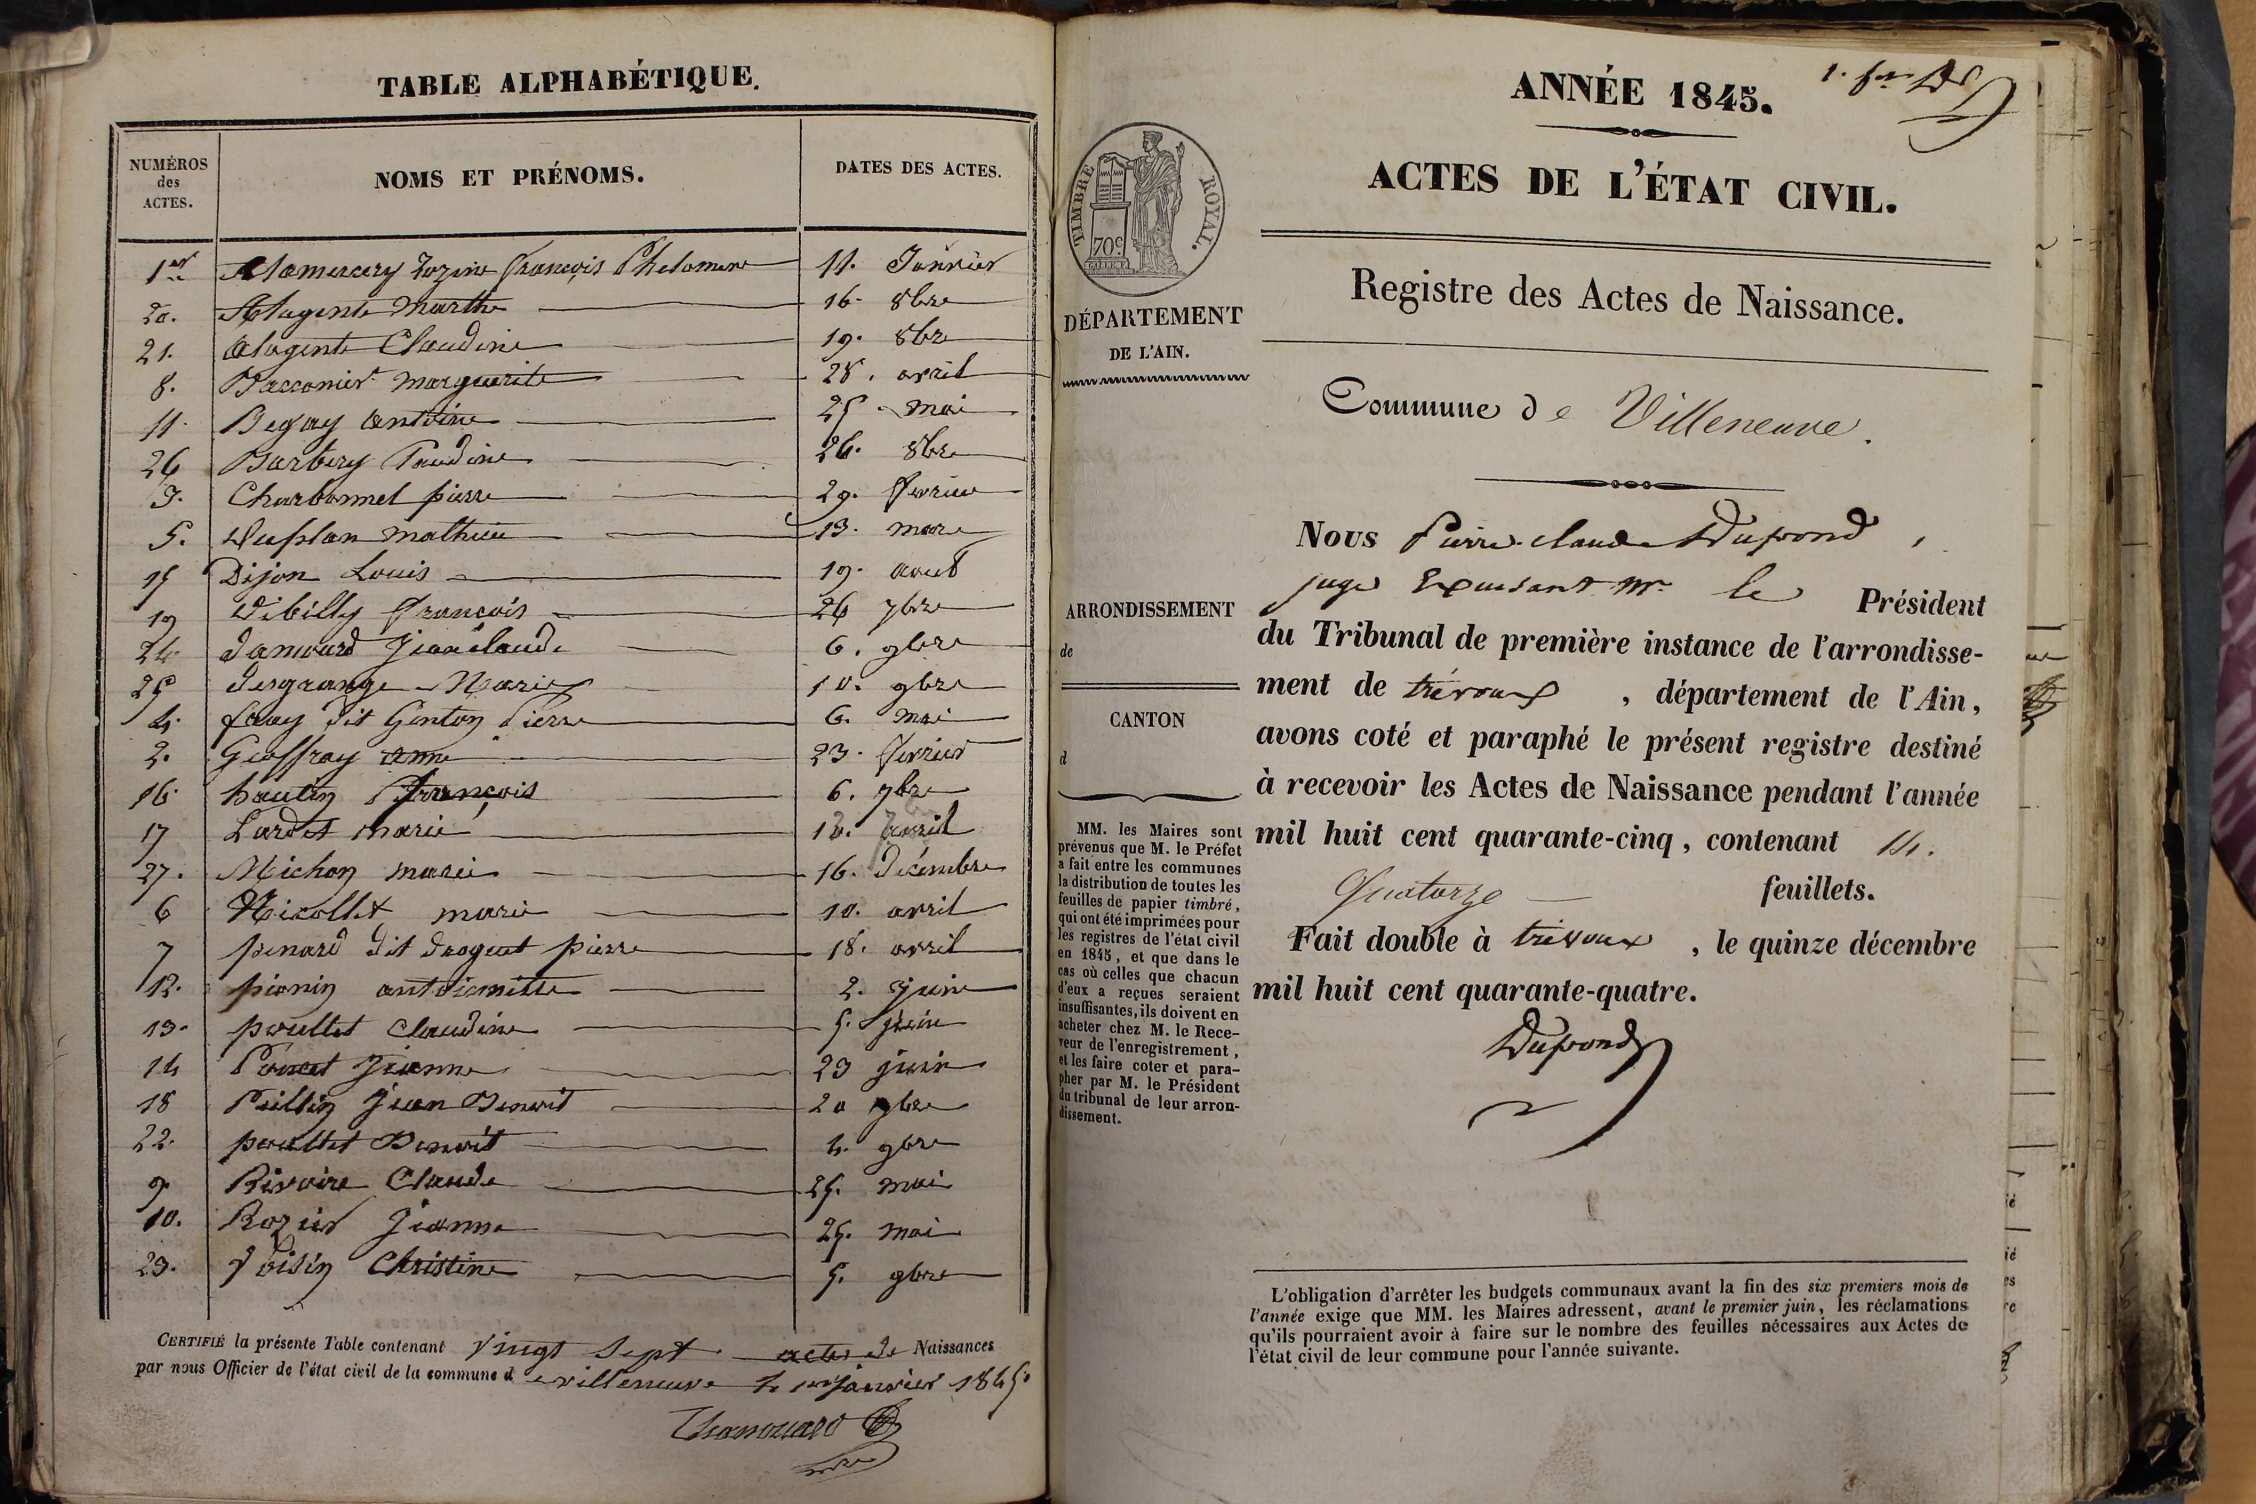 TABLE ALPHABÉTIQUE.
NUMÉROS
des
ACTES.
NOMS ET PRÉNOMS.
DATES DES ACTES.
1er Alamercery François Philomene 11. Janvier
20. Alagente Marthe 16. 8bre
21. Alagente Claudine 19. 8bre
8. Bassonier Marguerite 28. avril
11. Begay antoine 25. mai
26 Barbery 26. 8bre
3. Charbonnel pierre 29. fevrier
5. Duplan mathieu 13. mars
15 Dijon Louis 19. aout
19 Dibilly François 26 7bre
24. Danward Jean claude 6. 9bre
25 Desgrange Marie 10. 9bre
4. fray dit Genton Pierre 6. mai
2. Geoffray anne 23. fevrier
16. hautin François 6. 7bre
17 Lardet marie 12. avril
27. Michon marie 16. Décembre
6 Nicollet marie 10. avril
7 penard dit droguet pierre 18. avril
12. pionin antoinette 2. juin
13. poullet Claudine 5. juin
14 Poncet Jeanne 23 juin
18 Peillin Jean Benoit 20 9bre
22. poullet Benoit 4. 9bre
9. Rivoire Claude 25. mai
10. Rozier Jeanne 25. mai
23. Voisin Christine 5. 9bre
CERTIFIÉ la présente Table contenant vingt sept actes de Naissances
par nous Officier de l'état civil de la commune de villeneuve 1er janvier 1845
ANNÉE 1845.
ACTES DE L'ÉTAT CIVIL.
TIMBRE ROYAL.
70c
DÉPARTEMENT
DE L'AIN.
Registre des Actes de Naissance.
Commune de Villeneuve.
Nous Pierre Claude Dupond,
juge Excusant Mr le Président
du Tribunal de première instance de l'arrondisse-
ment de trévoux, département de l'Ain,
avons coté et paraphé le présent registre destiné
à recevoir les Actes de Naissance pendant l'année
mil huit cent quarante-cinq, contenant 14.
Quatorze feuillets.
Fait double à trévoux, le quinze décembre
mil huit cent quarante-quatre.
Dupond
ARRONDISSEMENT
de
CANTON
d
MM. les Maires sont
prévenus que M. le Préfet
a fait entre les communes
la distribution de toutes les
feuilles de papier timbré,
qui ont été imprimées pour
les registres de l'état civil
en 1845, et que dans le
cas où celles que chacun
d'eux a reçues seraient
insuffisantes, ils doivent en
acheter chez M. le Rece-
veur de l'enregistrement,
et les faire coter et para-
pher par M. le Président
du tribunal de leur arron-
dissement.
L'obligation d'arrêter les budgets communaux avant la fin des six premiers mois de
l'année exige que MM. les Maires adressent, avant le premier juin, les réclamations
qu'ils pourraient avoir à faire sur le nombre des feuilles nécessaires aux Actes de
l'état civil de leur commune pour l'année suivante.